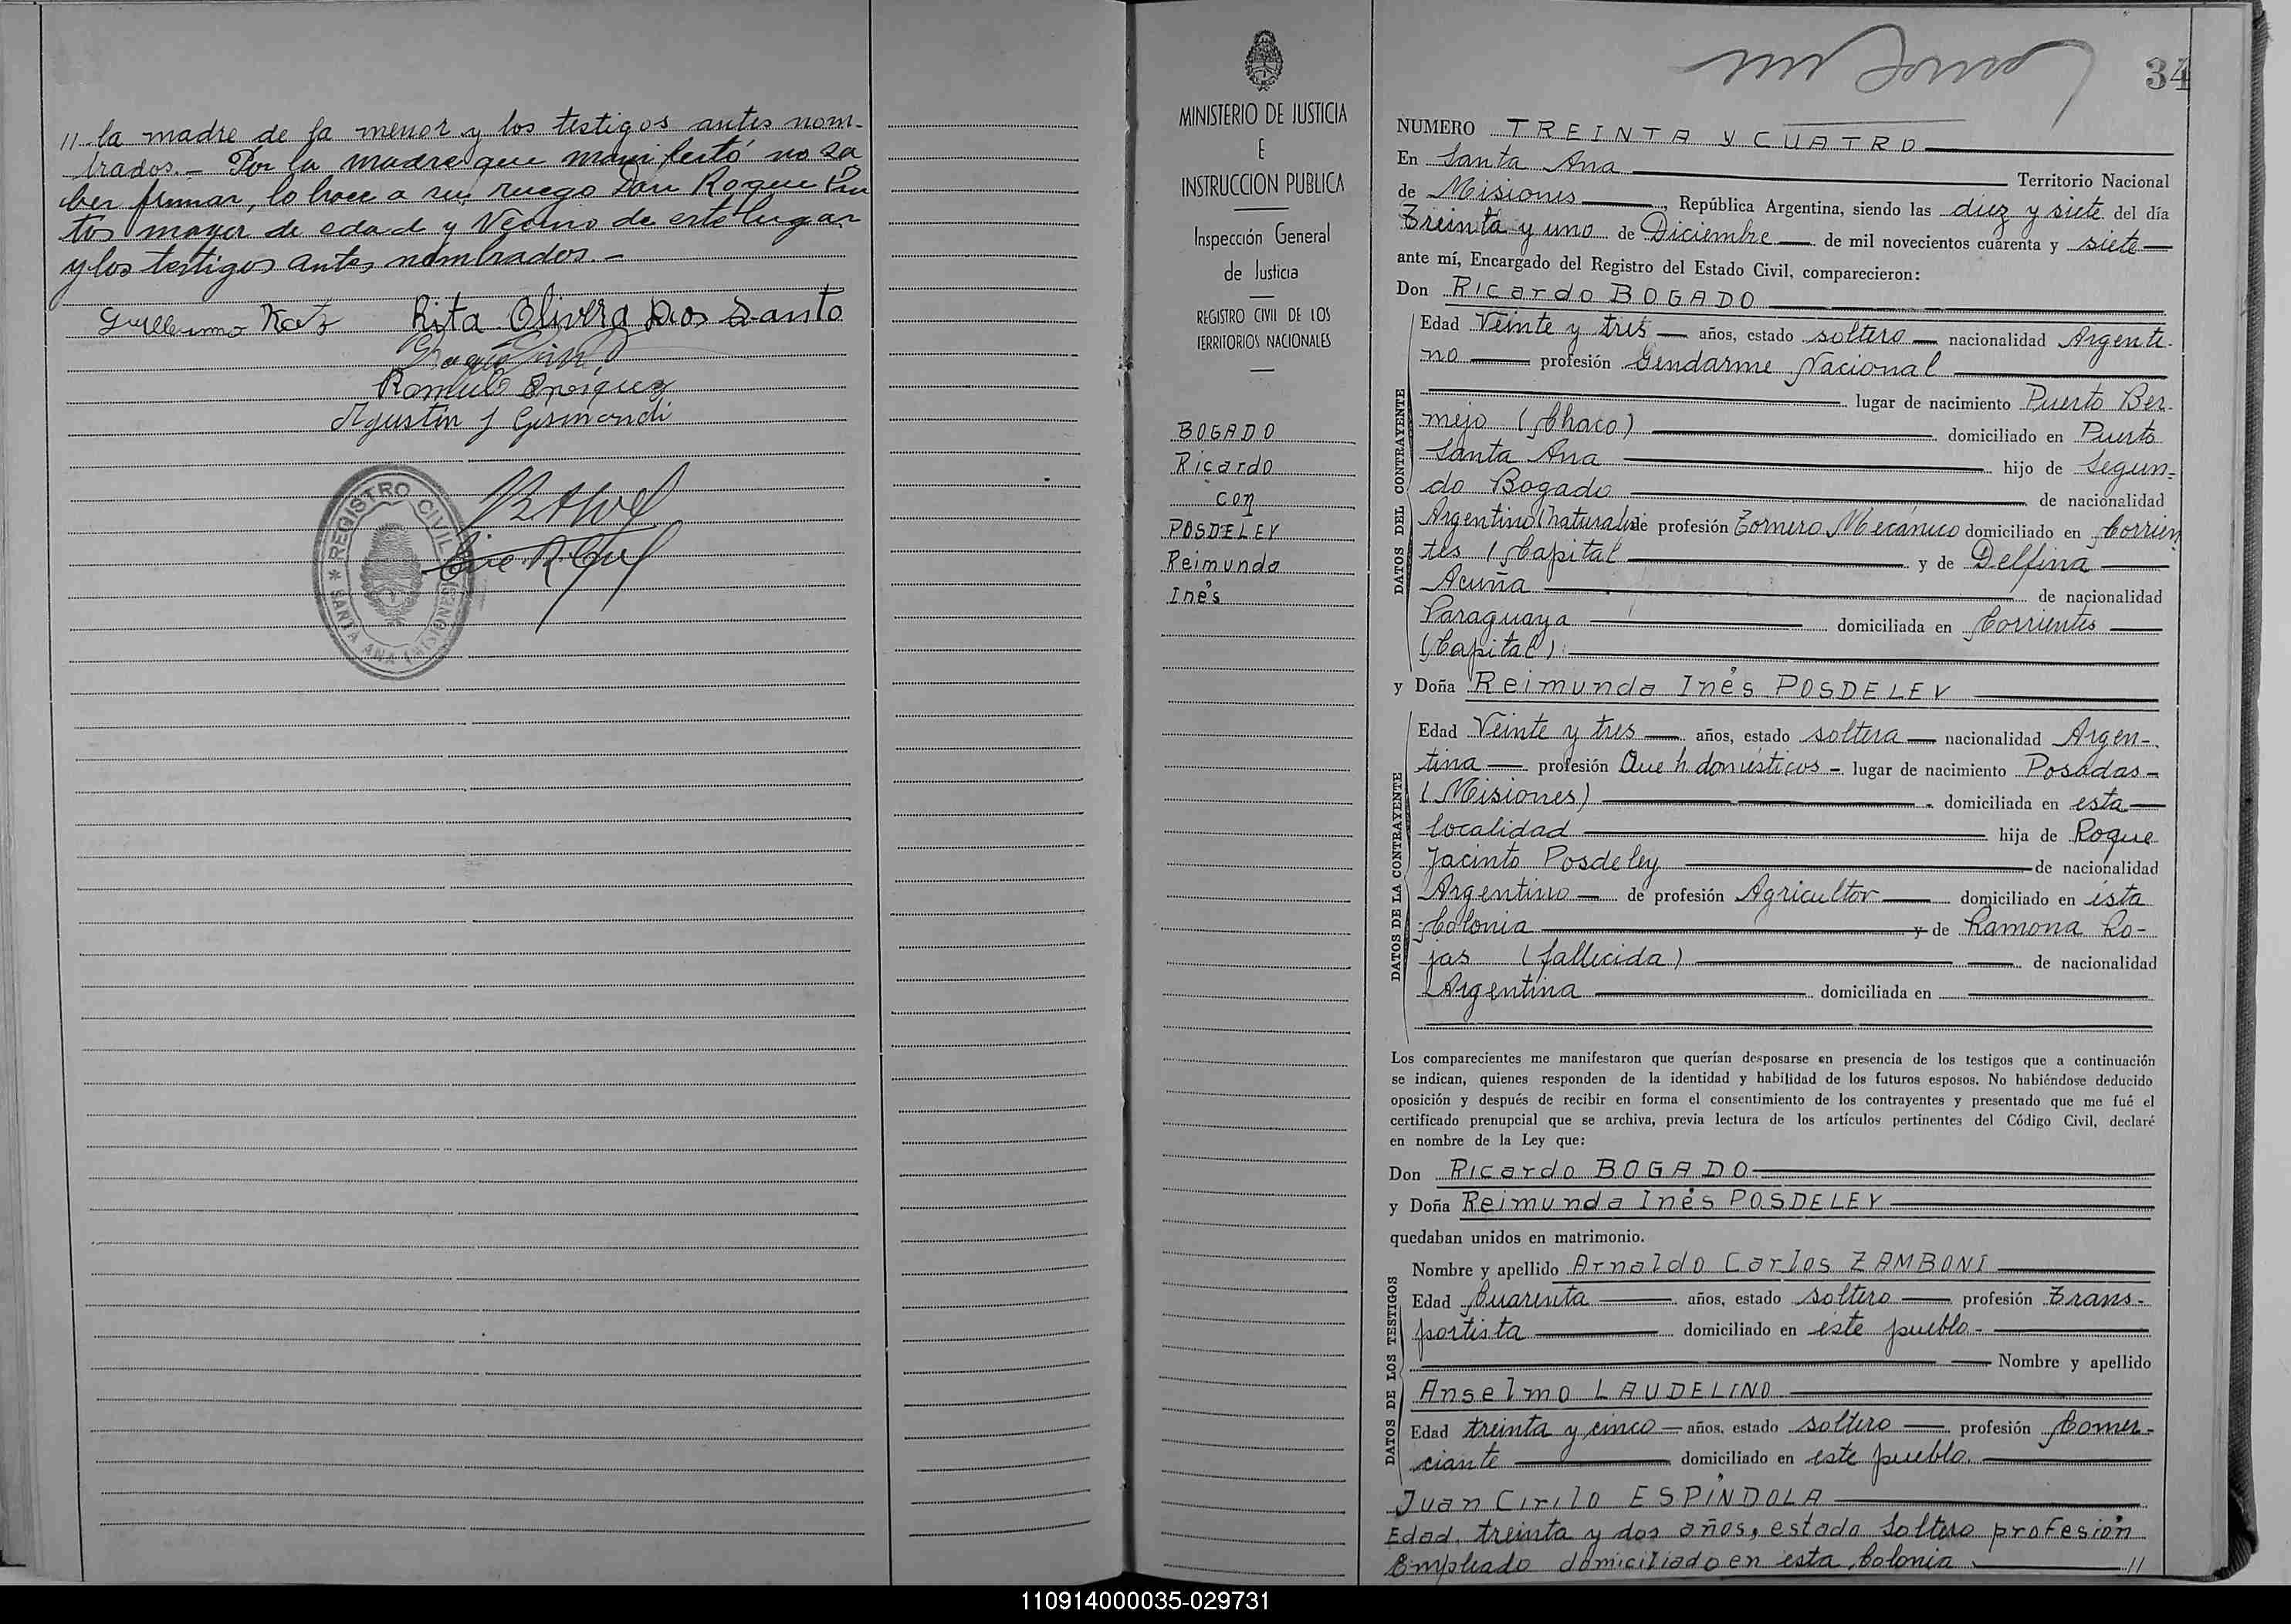 // la madre de la menor y los testigos antes nom-
brados.- Por la madre que manifestó no sa
ber firmar, lo hace a su ruego Don Roque Pin
tos mayor de edad y Vecino de este lugar
y los testigos antes nombrados.-
Guillermo Katz Rita Olivera Dos Santo
Romulo Enriquez
Agustin J Gismondi
REGISTRO CIVIL
SANTA ANA (MISIONES)
MINISTERIO DE JUSTICIA
E
INSTRUCCION PUBLICA
Inspección General
de Justicia
REGISTRO CIVIL DE LOS
TERRITORIOS NACIONALES
BOGADO
Ricardo
con
POSDELEY
Reimunda
Inés
34
NUMERO TREINTA Y CUATRO
En Santa Ana Territorio Nacional
de Misiones, República Argentina, siendo las diez y siete del día
Treinta y uno de Diciembre de mil novecientos cuarenta y siete
ante mí, Encargado del Registro del Estado Civil, comparecieron:
Don Ricardo BOGADO
DATOS DEL CONTRAYENTE
Edad Veinte y tres años, estado soltero nacionalidad Argenti-
no profesión Gendarme Nacional
lugar de nacimiento Puerto Ber-
mejo (Chaco) domiciliado en Puerto
Santa Ana hijo de Segun-
do Bogado de nacionalidad
Argentino (natural) de profesión Tornero Mecánico domiciliado en Corrien
tes (Capital y de Delfina
Acuña de nacionalidad
Paraguaya domiciliada en Corrientes
(Capital).
y Doña Reimunda Inés POSDELEY
DATOS DE LA CONTRAYENTE
Edad Veinte y tres años, estado soltera nacionalidad Argen-
tina profesión Que h. domésticos - lugar de nacimiento Posadas-
(Misiones) domiciliada en esta
localidad hija de Roque
Jacinto Posdeley de nacionalidad
Argentino de profesión Agricultor domiciliado en ésta
Colonia y de Ramona Ro-
jas (fallecida) de nacionalidad
Argentina domiciliada en
Los comparecientes me manifestaron que querían desposarse en presencia de los testigos que a continuación
se indican, quienes responden de la identidad y habilidad de los futuros esposos. No habiéndose deducido
oposición y después de recibir en forma el consentimiento de los contrayentes y presentado que me fué el
certificado prenupcial que se archiva, previa lectura de los artículos pertinentes del Código Civil, declaré
en nombre de la Ley que:
Don Ricardo BOGADO
y Doña Reimunda Inés POSDELEY
quedaban unidos en matrimonio.
DATOS DE LOS TESTIGOS
Nombre y apellido Arnaldo Carlos ZAMBONI
Edad Cuarenta años, estado soltero profesión Trans-
portista domiciliado en este pueblo-
Nombre y apellido
Anselmo LAUDELINO
Edad treinta y cinco años, estado soltero profesión Comer-
ciante domiciliado en este pueblo.
Juan Cirilo ESPÍNDOLA
Edad treinta y dos años, estado Soltero profesión
Empleado domiciliado en esta Colonia //
110914000035-029731